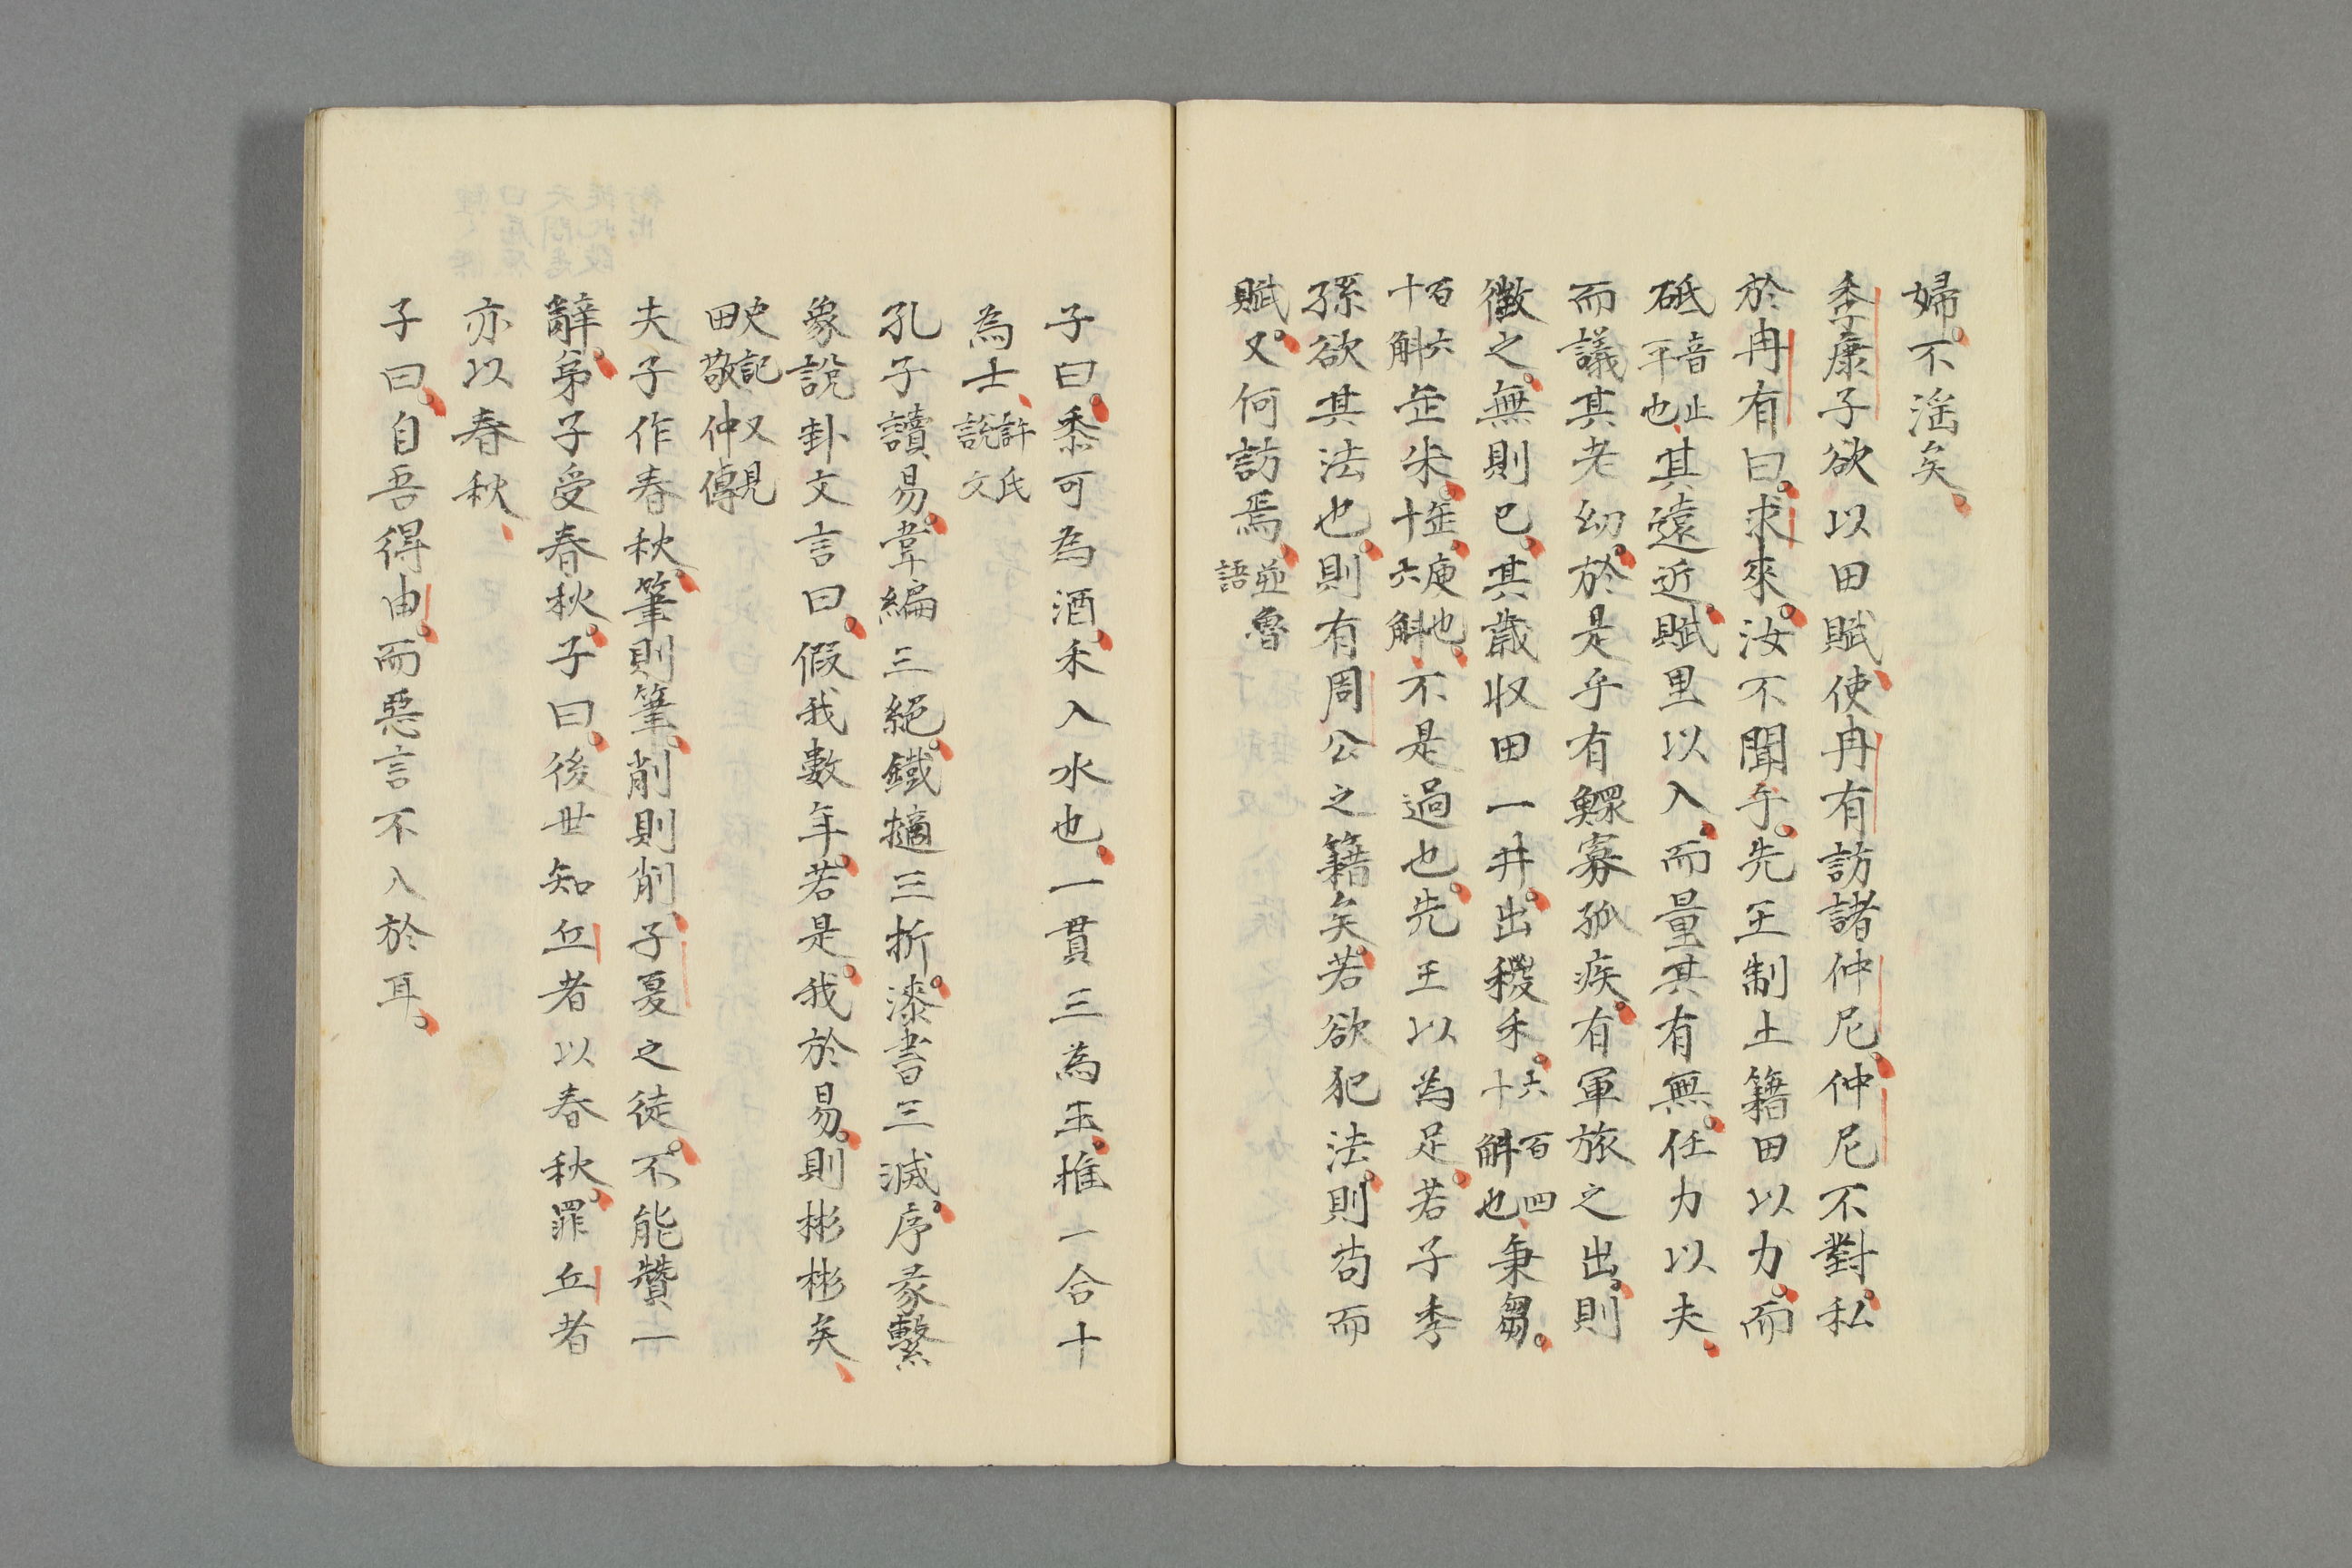 婦。不滛矣。
季康子欲以田賦、使冉有訪諸仲尼。仲尼不對。私
於冉有曰。求來。汝不聞乎。先王制土籍田以力。而
砥音止平也、其遠近。賦里以入、而量其有無。任力以夫、
而議其老幼。於是乎有鰥寡孤疾。有軍旅之出。則
徵之。無則已。其歲収田一井。出稯禾。六百四十斛也、秉芻。
百六十斛缶米。缶、庾也、十六斛、不是過也。先王以為足。若子季
孫欲其法也。則有周公之籍矣。若欲犯法。則苟而
賦。又何訪焉。並魯語
子曰。黍可為酒。禾入水也、一貫三為王。推一合十
為士、許氏說文
孔子讀易。韋編三絕。鐵擿三折。漆書三滅。序彖繫
象說卦文言曰。假我數年。若是。我於易。則彬彬矣、
史記又見田敬仲傳
夫子作春秋。筆則筆。削則削、子夏之徒。不能贊一
辭。弟子受春秋。子曰。後世知丘者以春秋。罪丘者
亦以春秋、
子曰。自吾得由。而惡言不入於耳。